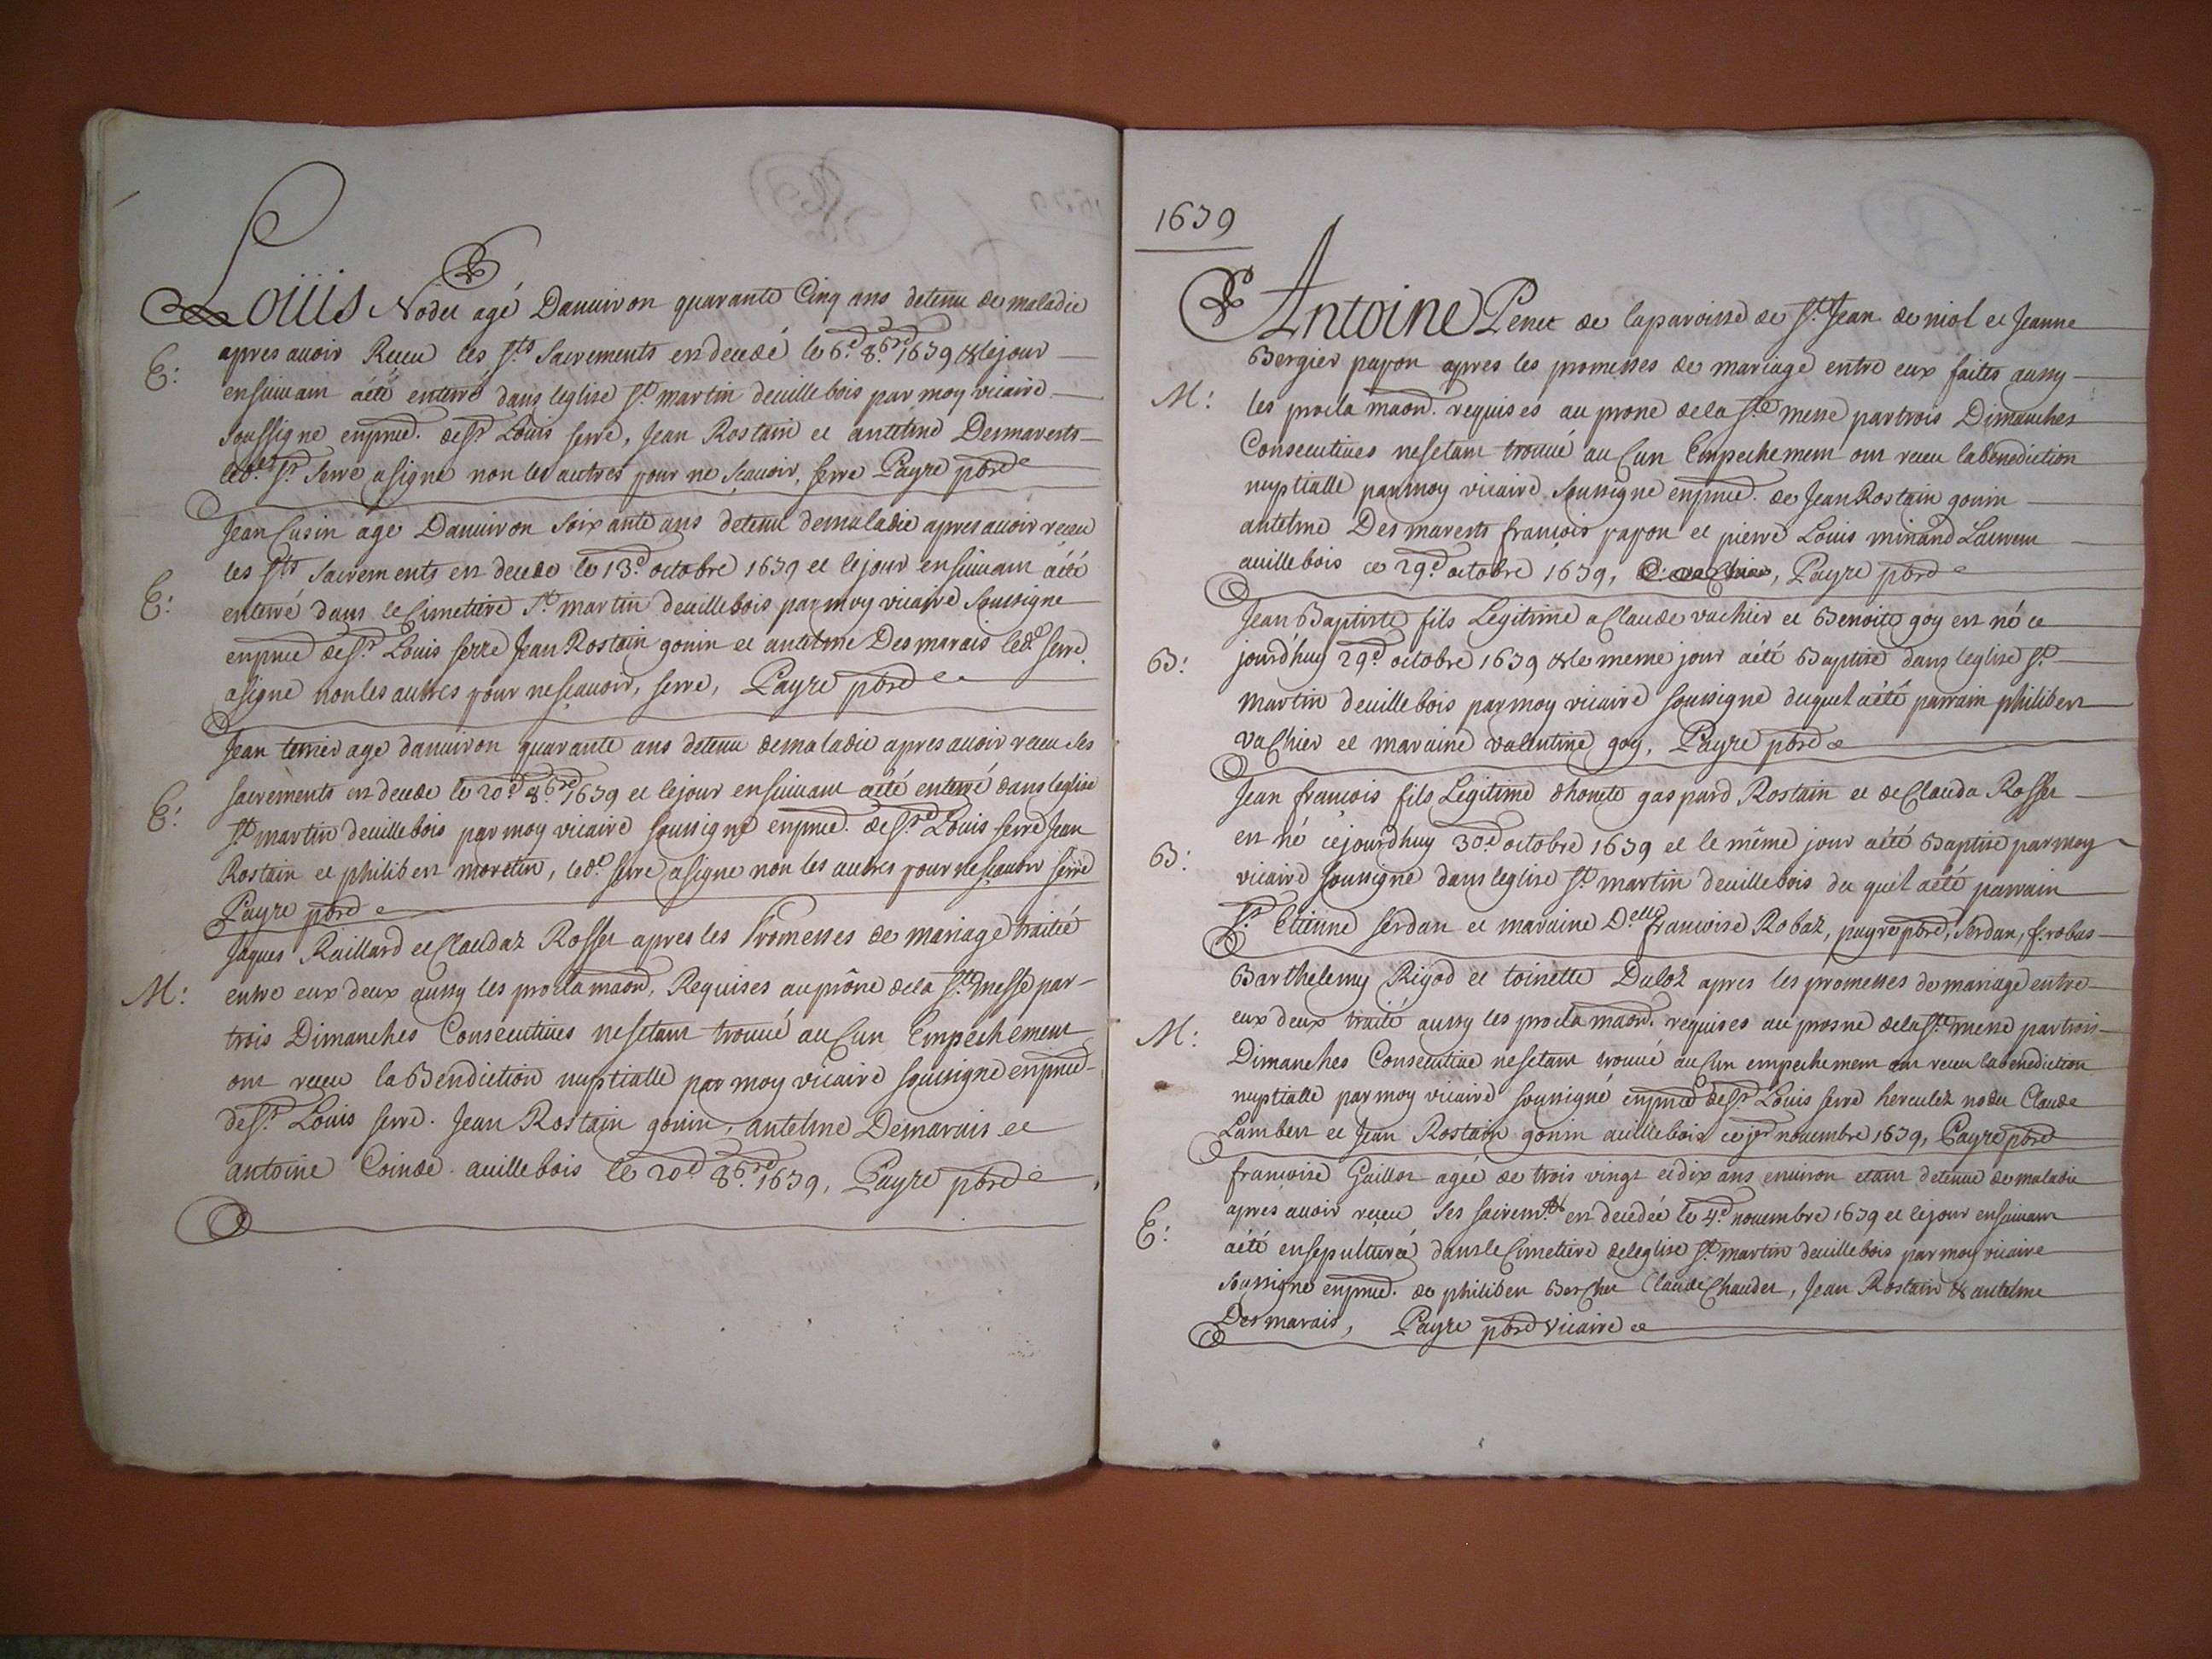 Loüis Nodet agé Danuiron quarante Cinq ans detenu de maladie
apres auoir Receu les Sts Sacrements est decedé le 6e 8bre 1639 & le jour
ensuiuant a été enterré dans leglise St martin deuillebois par moy vicaire
soussigné enpnce de Sr Louis serre, Jean Rostain et antelme Desmarests
led. Sr Serre a signé non les autres pour ne scauoir, serre Payre pbre
Jean Cusin agé Danuiron soixante ans detenu de maladie apres auoir receu
les Sts Sacrements est decedé le 13e octobre 1639 et le jour ensuiuant a été
enterré dans le Cimetiere St martin deuillebois par moy vicaire soussigné
enpnce de Sr Louis serre Jean Rostain gonin et antelme Desmarais led. serre
a signé non les autres pour ne scauoir, serre, Payre pbre
Jean terrier agé danuiron quarante ans detenu de maladie apres auoir receu les
sacrements est decedé le 20e 8bre 1639 et le jour ensuiuant a été enterré dans leglise
St martin deuillebois par moy vicaire soussigné enpnce. de Sr Louis serre Jean
Rostain et philibert moretin, led. serre a signé non les autres pour ne scauoir serre
Payre pbre
Jaques Raillard et Claudaz Rosset apres les Promesses de mariage traitté
entre eux deux aussy les proclamaon. Requises au prône de la Ste messe par
trois Dimanches Consecutiues ne sétant trouué auCun Empechement
ont receu la Bendiction nuptialle par moy vicaire soussigné enpnce
de Sr Louis serre. Jean Rostain gonin, antelme Demarais et
antoine Coinde. auillebois le 20e 8bre 1639, Payre pbre
1639
Antoine Penet de la paroisse de St Jean de niol et Jeanne
Bergier papon apres les promesses de mariage entre eux faites aussy
les proclamaon. requises au prone de la Ste messe par trois Dimanches
Consecutiues ne setant trouué auCun Empechement ont receu la benediction
nuptialle par moy vicaire soussigné enpnce. de Jean Rostain gonin
antelme Desmarests francois papon et pierre Louis minand Laurent
auillebois ce 29e octobre 1639, Payre pbre
Jean Baptiste fils Legitime a Claude vachier et Benoite goy est né ce
jourd'huy 29e octobre 1639 & le meme jour a été Baptisé dans leglise St
martin deuillebois par moy vicaire soussigné duquel a été parrain philibert
vaChier et maraine valentine goy, Payre pbre
Jean francois fils Legitime dhonete gaspard Rostain et de Clauda Rosset
est né ce jourd'huy 30e octobre 1639 et le même jour a été Baptisé par moy
vicaire soussigné dans leglise St martin deuillebois du quel a été parrain
Sr Etienne serdan et maraine Delle francoise Robaz, payre pbre, serdan, f. robas
Barthelemy Rigod et toinette Duloz apres les promesses de mariage entre
eux deux traité aussy les proclamaon. requises au prosne de la Ste messe par trois
Dimanches Consecutiue ne setant trouué auCun empechement ont receu la benediction
nuptialle par moy vicaire soussigné enpnce de Sr Louis serre herculez nodet Claude
Lambert et Jean Rostain gonin auillebois ce jer nouembre 1639, Payre pbre
francoise Gaillot agée de trois vingt et dix ans enuiron etant detenue de maladie
apres auoir receu les sairemts est decedée le 4e nouembre 1639 et le jour ensuiuant
a été ensepulturée dans le Cimetiere de leglise St martin deuillebois par moy vicaire
soussigné enpnce. de philibert BerChet Claude Chaudet, Jean Rostain & antelme
Desmarais, Payre pbre vicaire
E:
E:
E:
M:
M:
B:
B:
M:
E: